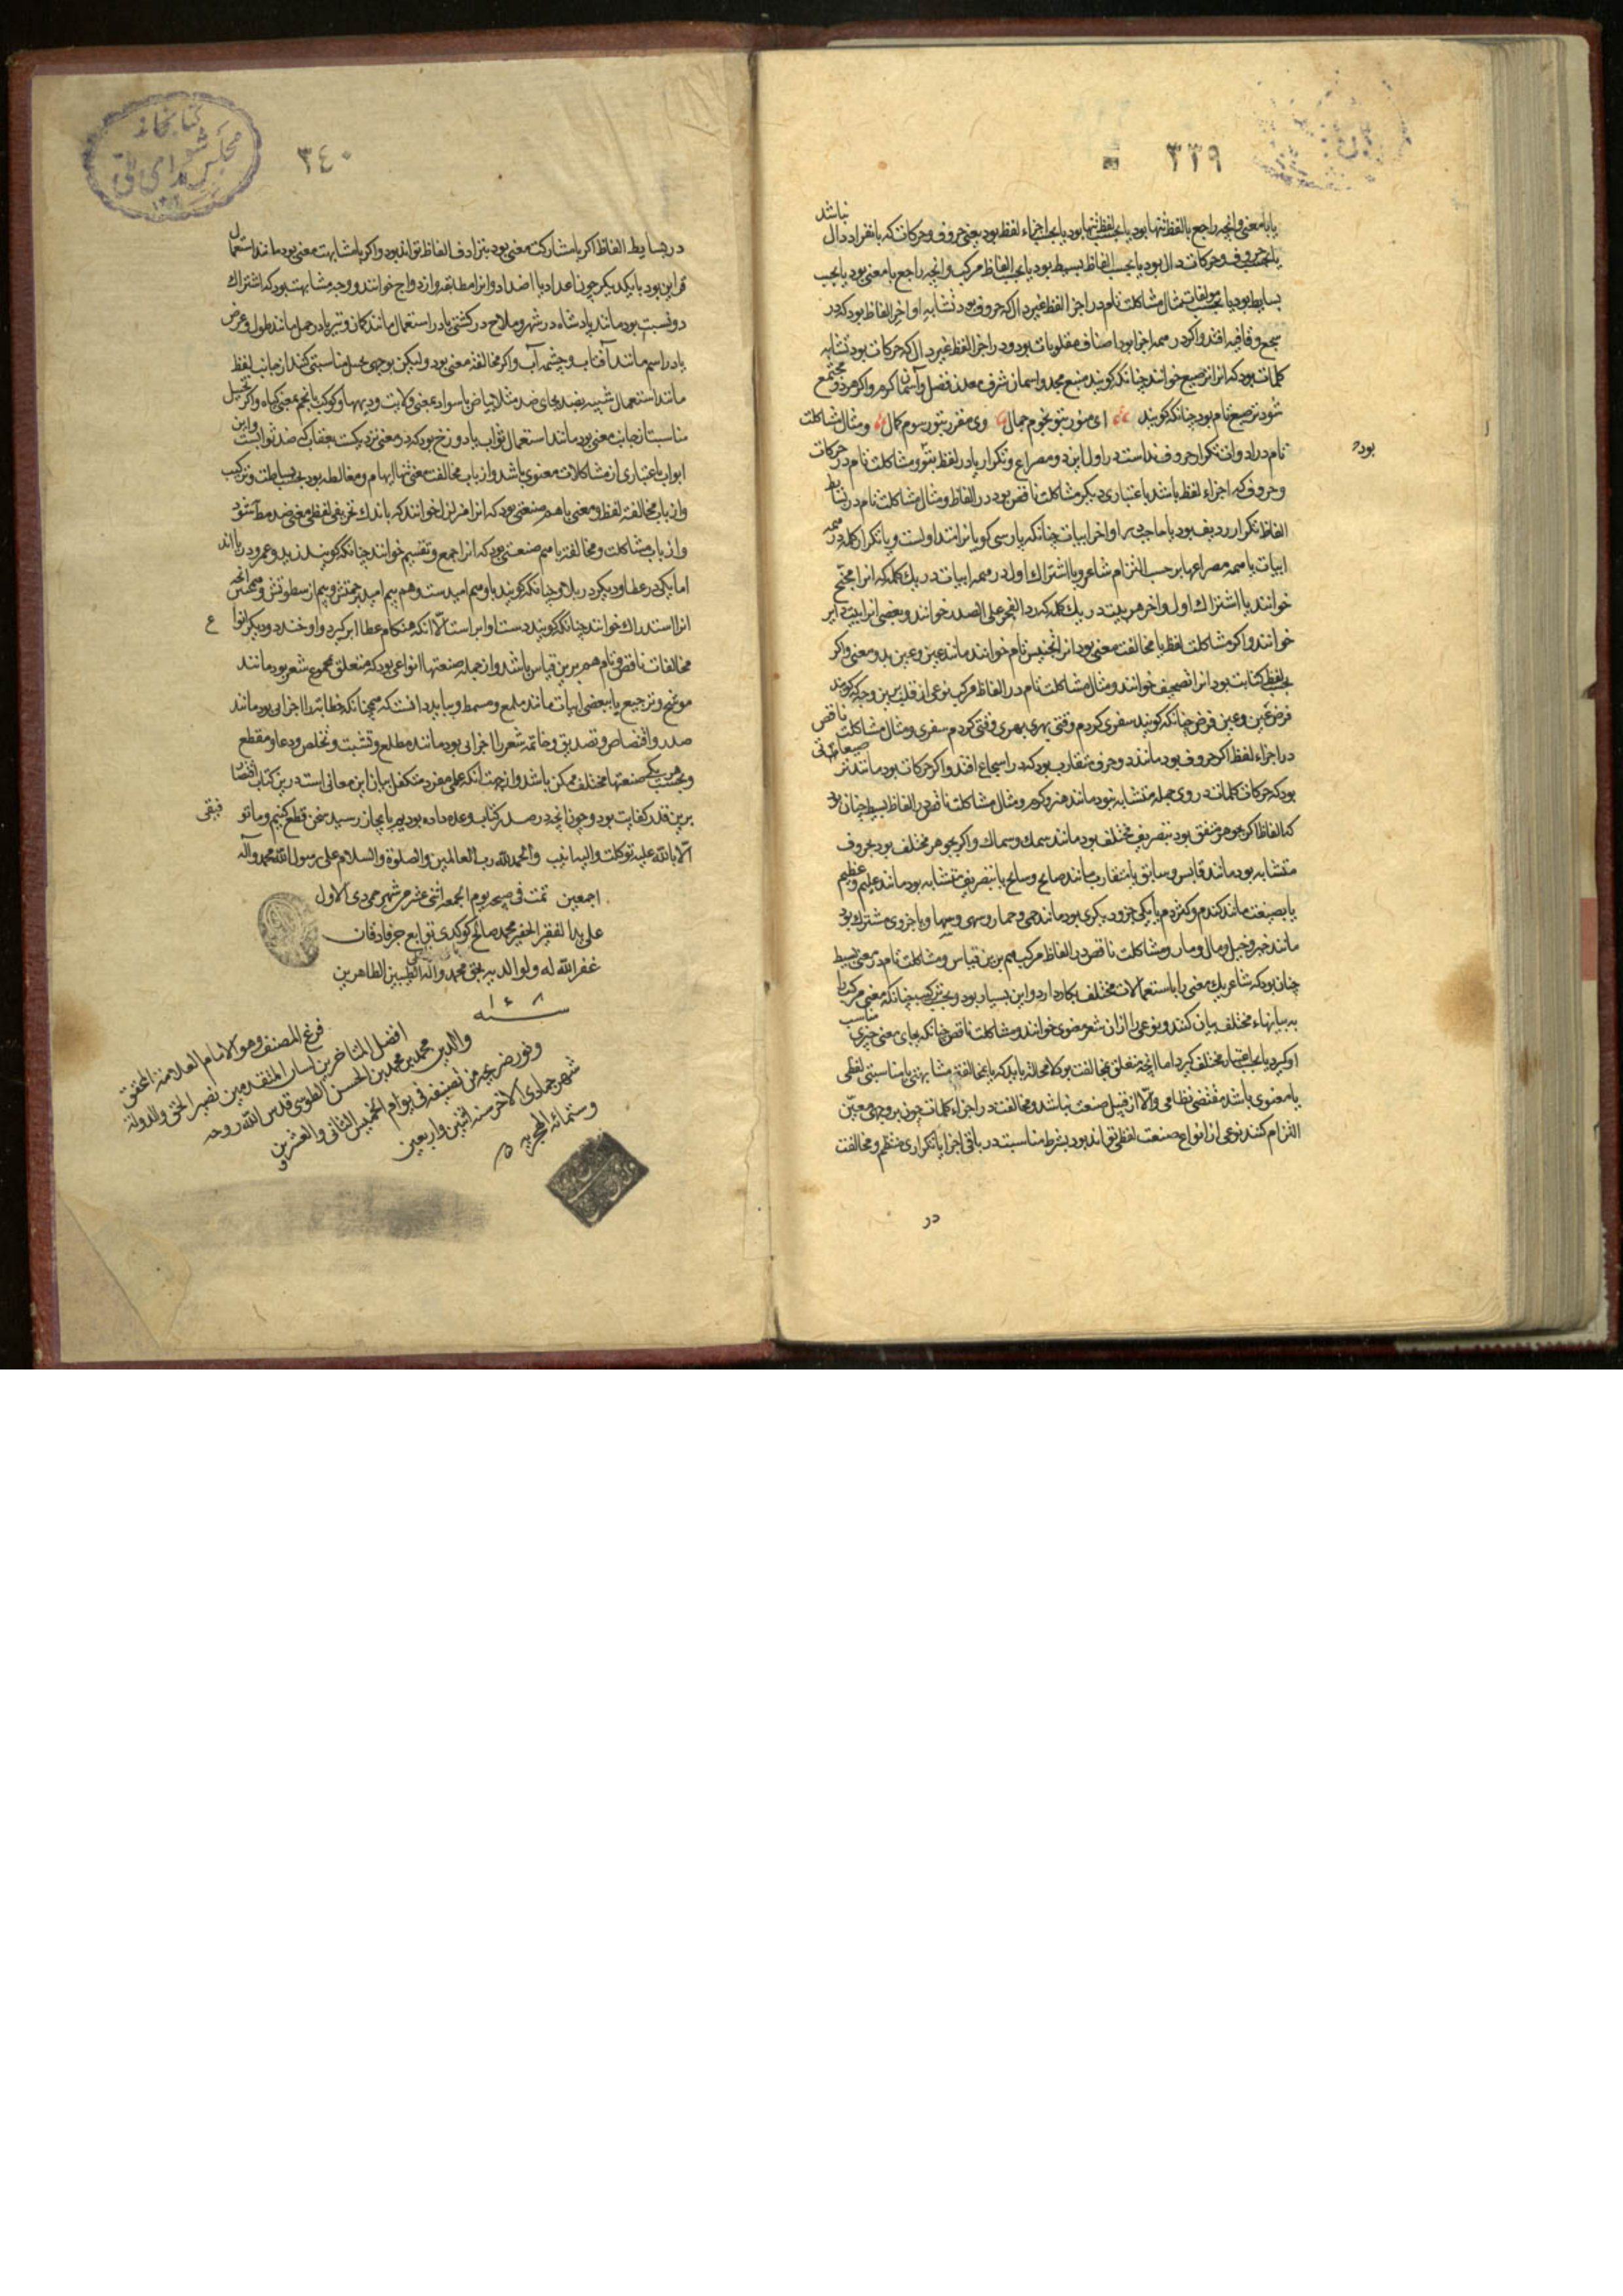 ٣٣٩
نباشد
یا بامعنی و انچه راجع با لفظ تنها بود یا بحسب لفظ تنها بود یا بحسب اجزاء لفظ بود یعنی حروف و حرکات که بانفراد دال
یا بحسب حروف و حرکات دال بود یا بحسب الفاظ بسیط بود یا بحسب الفاظ مرکب و انچه راجع با معنی بود یا بحسب
بسایط بود یا بحسب مولفات مثال مشاکلت تام در اجزا لفظ غیر دال که حروف بود تشابه اواخر الفاظ بود که در
سجع و قافیه افتد و اکر در همه اجزا بود اصناف مقلوبات بود و در اجزا لفظ غیر دال که حرکات بود تشابه
کلمات بود که انرا ترصیع خوانند چنانکه کویند منبع مجد و اسمان شرف معدن فضل و آسمان کرم و اکر هر دو مجتمع
شود ترصیع تام بود چنانکه کویند ای منور بتو نجوم جمال وی مقرر بتو رسوم کمال و مثال مشاکلت
تام در ادوات تکرار حروف نداست در اول این دو مصراع و تکرار با در لفظ بتو و مشاکلت تام در حرکات
بود
و حروف که اجزاء لفظ باشد باعتباری دیکر مشاکلت ناقص بود در الفاظ و مثال مشاکلت تام در بسایط
الفاظ تکرار ردیف بود یا حاجب در اواخر ابیات چنانکه پارسی کویانرا متداولست و یا تکرار کلمه در همه
ابیات یا همه مصراعها بر حسب التزام شاعر و یا اشتراک اول در همه ابیات در یک کلمه که انرا
خوانند یا اشتراک اول و اخر هر بیت در یک کلمه که رد العجز علی الصدر خوانند و بعضی انرا بیت دایر
خوانند و اکر مشاکلت لفظ با مخالفت معنی بود انرا تجنیس تام خوانند مانند عین و عین بدو معنی و اکر
بحسب لفظ کتابت بود انرا تصحیف خوانند و مثال مشاکلت تام در الفاظ مرکب نوعی از قلب برین وجه که کویند
چنانکه کویند سفری کردم وقتی بهری بهری وقتی کردم سفری و مثال مشاکلت ناقص
در اجزاء لفظ اکر حروف بود مانند دو حرف متقارب بود که در اسجاع افتد و اکر حرکات بود مانند
بود که حرکات کلمات در وی جمله متشابه نبود مانند هنر و کرم و مثال مشاکلت ناقص در الفاظ بسیط چنان بود
که الفاظ اکر بجوهر متفق بود بتصریف مختلف بود مانند سمک و سماک و اکر بجوهر مختلف بود بحروف
متشابه بود مانند قابس و سابق یا متقارب مانند صالح و سالح یا بتصریف متشابه بود مانند علیم و عظیم
یا بصنعت مانند کندم و کژدم یا یکی جزو دیکری بود مانند و یا جزوی مشترک بود
مانند و خیل و مال و مار و مشاکلت ناقص در الفاظ مرکب هم برین قیاس و مشاکلت تام در معنی بسیط
چنان بود که شاعر یک معنی را باستعمالات مختلف بکار دارد و این بسیار بود و بحسب ترکیب چنانکه معنی مرکب را
به بیانهاء مختلف بیان کنند و نوعی را ازان شعر خوانند و مشاکلت ناقص چنانکه بجای معنی چیزی مناسب
او کیرد اما انچه متعلق بمخالفت بود لامحاله باید که با مخالفت مشابهتی یا مناسبتی لفظی
یا معنوی باشد مقتضی نظامی و الا از قبیل صنعت نباشد و مخالفت در اجزاء کلمات چون بر وجهی معین
التزام کنند نوعی از انواع صنعت لفظی تواند بود بشرط مناسبت در باقی اجزا یا تکراری منظم و مخالفت
در
کتابخانه
مجلس شورای ملی
٣٤٠
در بسایط الفاظ اکر با مشارکت معنی بود بترادف الفاظ تواند بود و اکر با مشابهت معنی بود مانند استعمال
قراین بود با یکدیکر چون اعداد یا اضداد و انرا مطابقه و ازدواج خوانند و وجه مشابهت بود که اشتراک
دو نسبت بود مانند پادشاه در شهر و ملاح در کشتی یا در استعمال مانند کمان و تیر یا در حمل مانند طول و عرض
یا در اسم مانند آفتاب و چشمه آب و اکر مخالفت معنی بود ولیکن بوجهی بحیله مناسبتی کنند از جانب لفظ
مانند استعمال شبیه بضد بجای ضد مثلا بیاض با سواد بمعنی ولایت و دیهها و کوکب یا نجم بمعنی کیاه و اکر تخیل
مناسبت از جانب معنی بود مانند استعمال ثواب با دوزخ بود که در معنی نزدیکست بعقاب که ضد ثوابست و این
ابواب باعتباری از مشاکلات معنوی باشد و از باب مخالفت معنی تنها ایهام و مغالطه بود بحسب بساطت و ترکیب
و از باب مخالفت لفظ و معنی با هم صنعتی بود که انرا خوانند که باندک تحریفی لفظی معنی ضد شود
و از باب مشاکلت و مخالفت با هم صنعتی بود که انرا جمع و تقسیم خوانند چنانکه کویند زید و عمرو دریااند
اما یکی در عطا و دیکر در بلا و چنانکه کویند باو هم امیدست و هم بیم امید برحمتش و بیم از سطوتش و همچنین انچه
انرا استدراک خوانند چنانکه کویند دست او ابر است الا انکه هنکام عطا ابر کرید و او خندد و دیکر انواع
مخالفات ناقص و تام هم برین قیاس باشد و از جمله صنعتها انواعی بود که متعلق بمجموع شعر بود مانند
موشح و ترجیع یا ببعضی ابیات مانند ملمع و مسمط و بباید دانست که همچنانکه خطابت را اجزایی بود مانند
صدر و اقتصاص و تصدیق و خاتمه شعر را اجزایی بود مانند مطلع و تشبیب و تخلص و دعا و مقطع
و بحسب هر یکی صنعتها مختلف ممکن باشد و از جهت انکه علمی مفرد متکفل بیان این معانی است درین کتاب اقتصار
برین قدر کفایت بود و چون انچه در صدر کتاب وعده داده بودیم بانجا رسید سخن قطع کنیم و ما توفیقی
الا بالله علیه توکلت والیه انیب والحمد لله رب العالمین والصلوة والسلام علی رسول الله محمد وآله
اجمعین تمت فی یوم الجمعه اثنی عشر شهر جمدی الاول
علی ید الفقیر الحقیر محمد صالح کوکدی توابع جرفادقان
غفر الله له ولوالدیه بحق محمد وآله الطیبین الطاهرین
سنه ١٠٤٨
فرغ المصنف وهو الامام العلامة المحقق
افضل المتاخرین لسان المتقدمین نصیر الحق والدولة
والدین محمد بن محمد بن الحسن الطوسی قدس الله روحه
ونور ضریحه من تصنیفه فی یوم الخمیس الثانی والعشرین
شهر جمادی الاخر سنه اثنین واربعین
وستمائه الهجریه